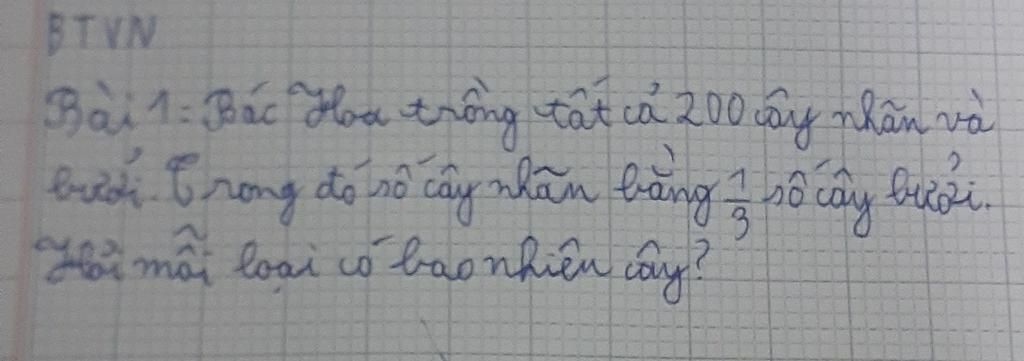 BTVN
Bài 1: Bác Hoa trồng tất cả 200 cây nhãn và
bưởi. Trong đó số cây nhãn bằng 1/3 số cây bưởi.
Hỏi mỗi loại có bao nhiên cây?